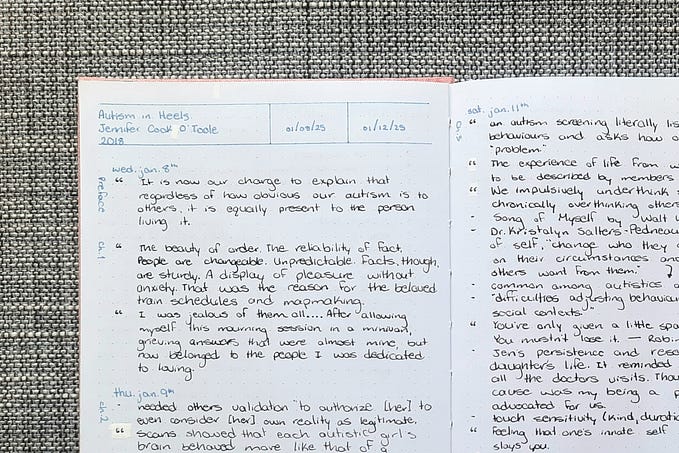 Autism in Heels
Jennifer Cook O'Toole
2018
01/08/25
01/12/25
wed. jan. 8th
Preface
" It is now our charge to explain that
regardless of how obvious our autism is to
others, it is equally present to the person
living it.
ch.1
" The beauty of order. The reliability of fact.
People are changeable. Unpredictable. Facts, though,
are sturdy. A display of pleasure without
anxiety. That was the reason for the beloved
train schedules and mapmaking.
" I was jealous of them all.... After allowing
myself this mourning session in a minivan,
grieving answers that were almost mine, but
now belonged to the people I was dedicated
to loving.
thu. jan. 9th
ch.2
- needed others validation "to authorize [her] to
even consider [her] own reality as legitimate.
" scans showed that each autistic girl's
brain behaved more like that of a
sat. jan. 11th
" an autism screening literally lis
behaviours and asks how o
"problem"
" The experience of life from w
to be described by members
" We impulsively underthink
chronically overthinking others
- Song of Myself by Walt W
- Dr. Kristalyn Salters-Pedneau
of self, "change who they a
on their circumstances and
others want from them."
- common among autistics a
- "difficulties adjusting behaviou
social contexts"
" You're only given a little spa
You mustn't lose it. — Robi
- Jen's persistence and rese
daughter's life. It reminded
all the doctors visits. Thou
cause was my being a p
advocated for us.
- touch sensitivity (kind, duratio
" Feeling that one's innate self
slays you.